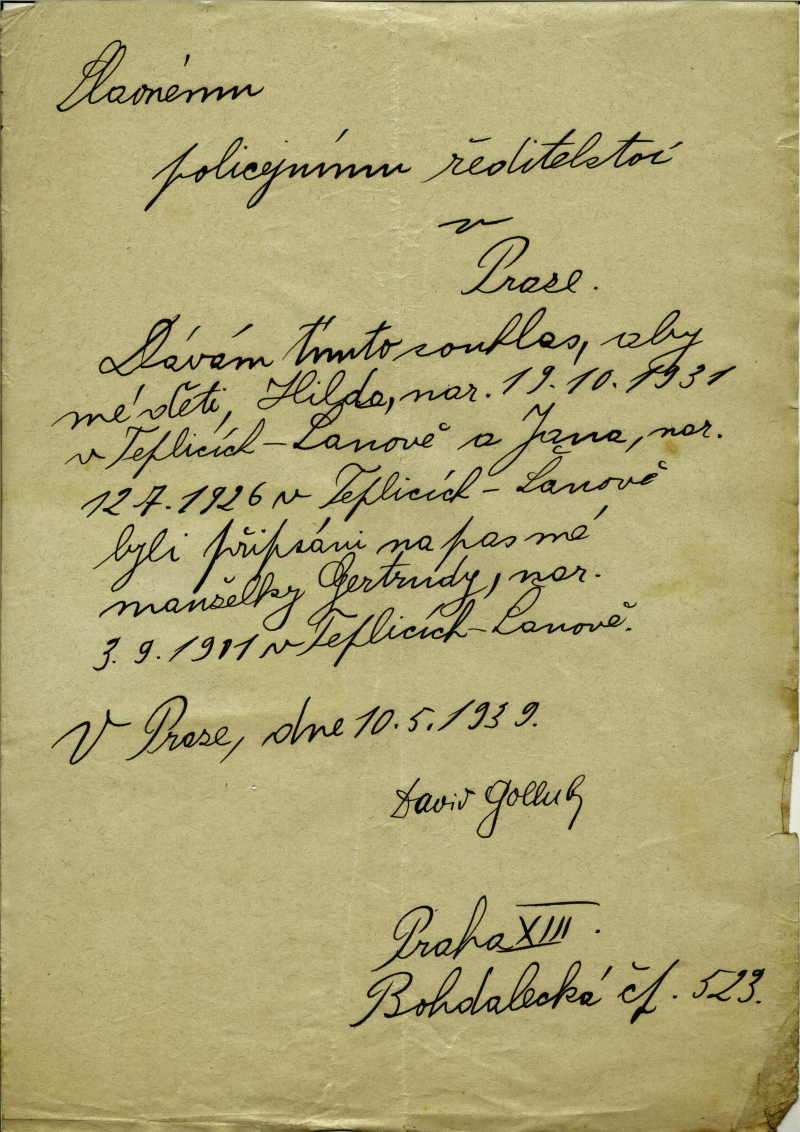 Slavnému
policejnímu ředitelství
v
Praze.
Dávám tímto souhlas, aby
mé děti, Hilda, nar. 19.10.1931
v Teplicích-Šanově a Jana, nar.
12.7.1926 v Teplicích-Šanově
byli připsáni na pas mé
manželky Gertrudy, nar.
3.9.1901 v Teplicích-Šanově.
V Praze, dne 10.5.1939.
David Gollub
Praha XIII.
Bohdalecká čp. 523.